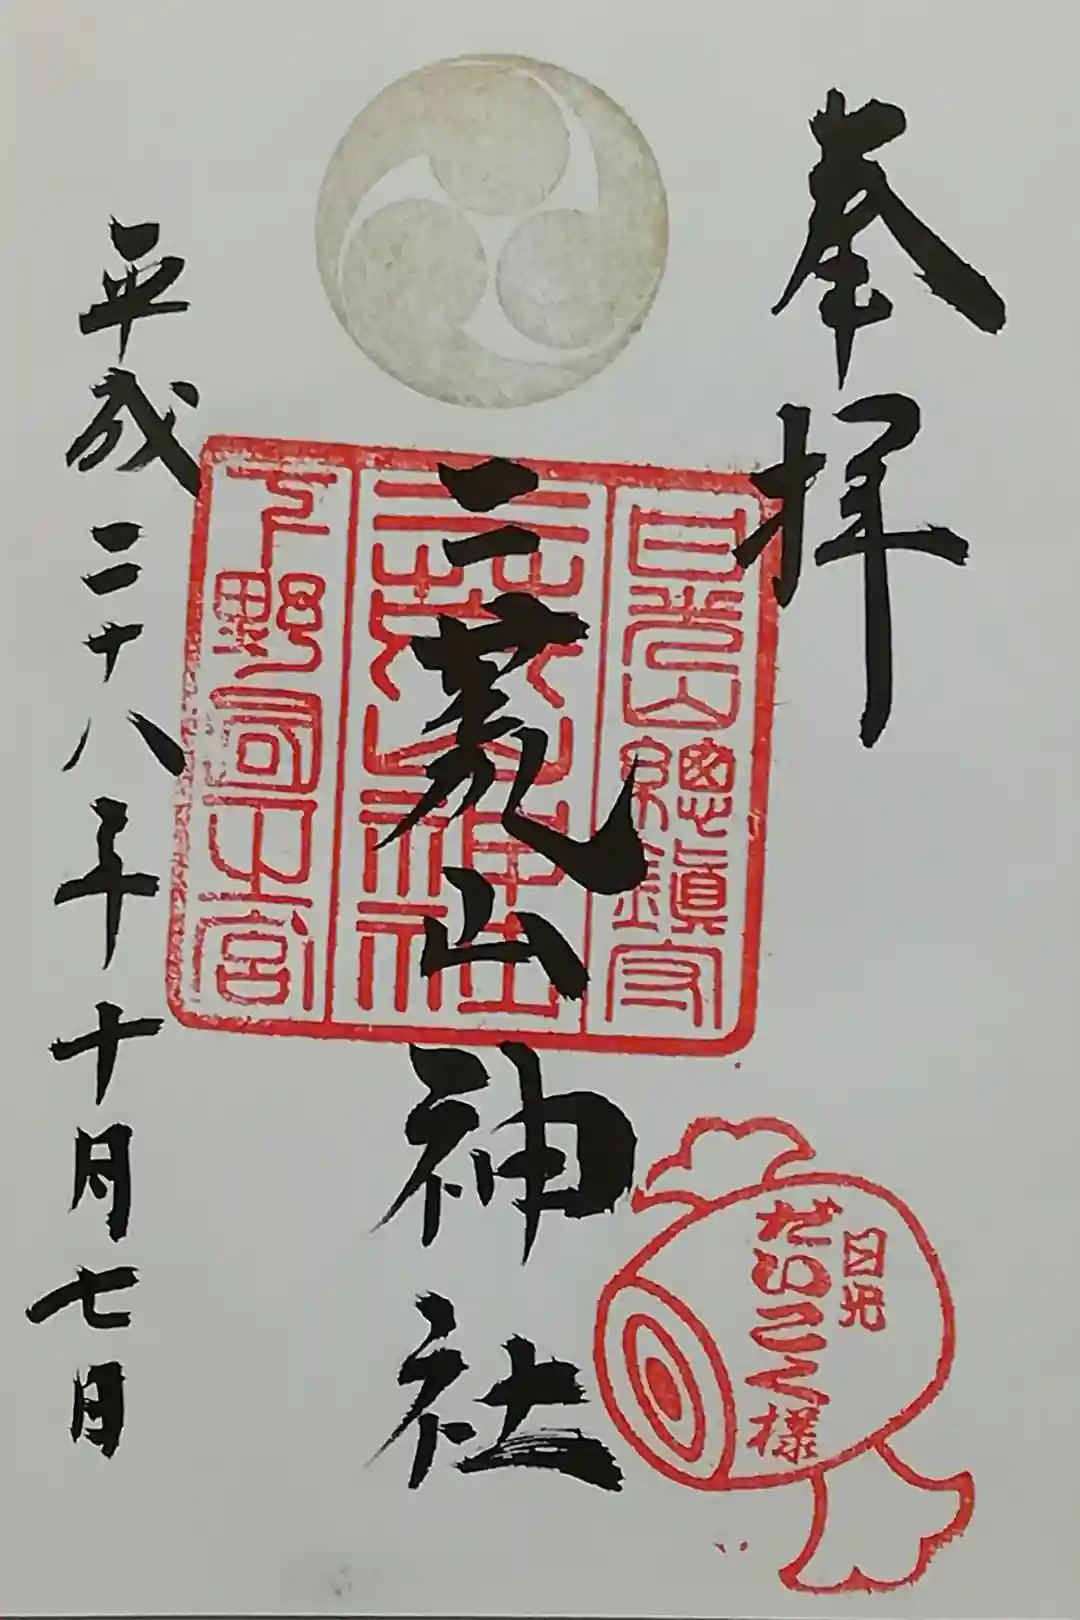 奉拝
日光山總鎮守
二荒山神社
二荒山神社
下野国一宮
平成二十八年十月七日
日光
だいこく様